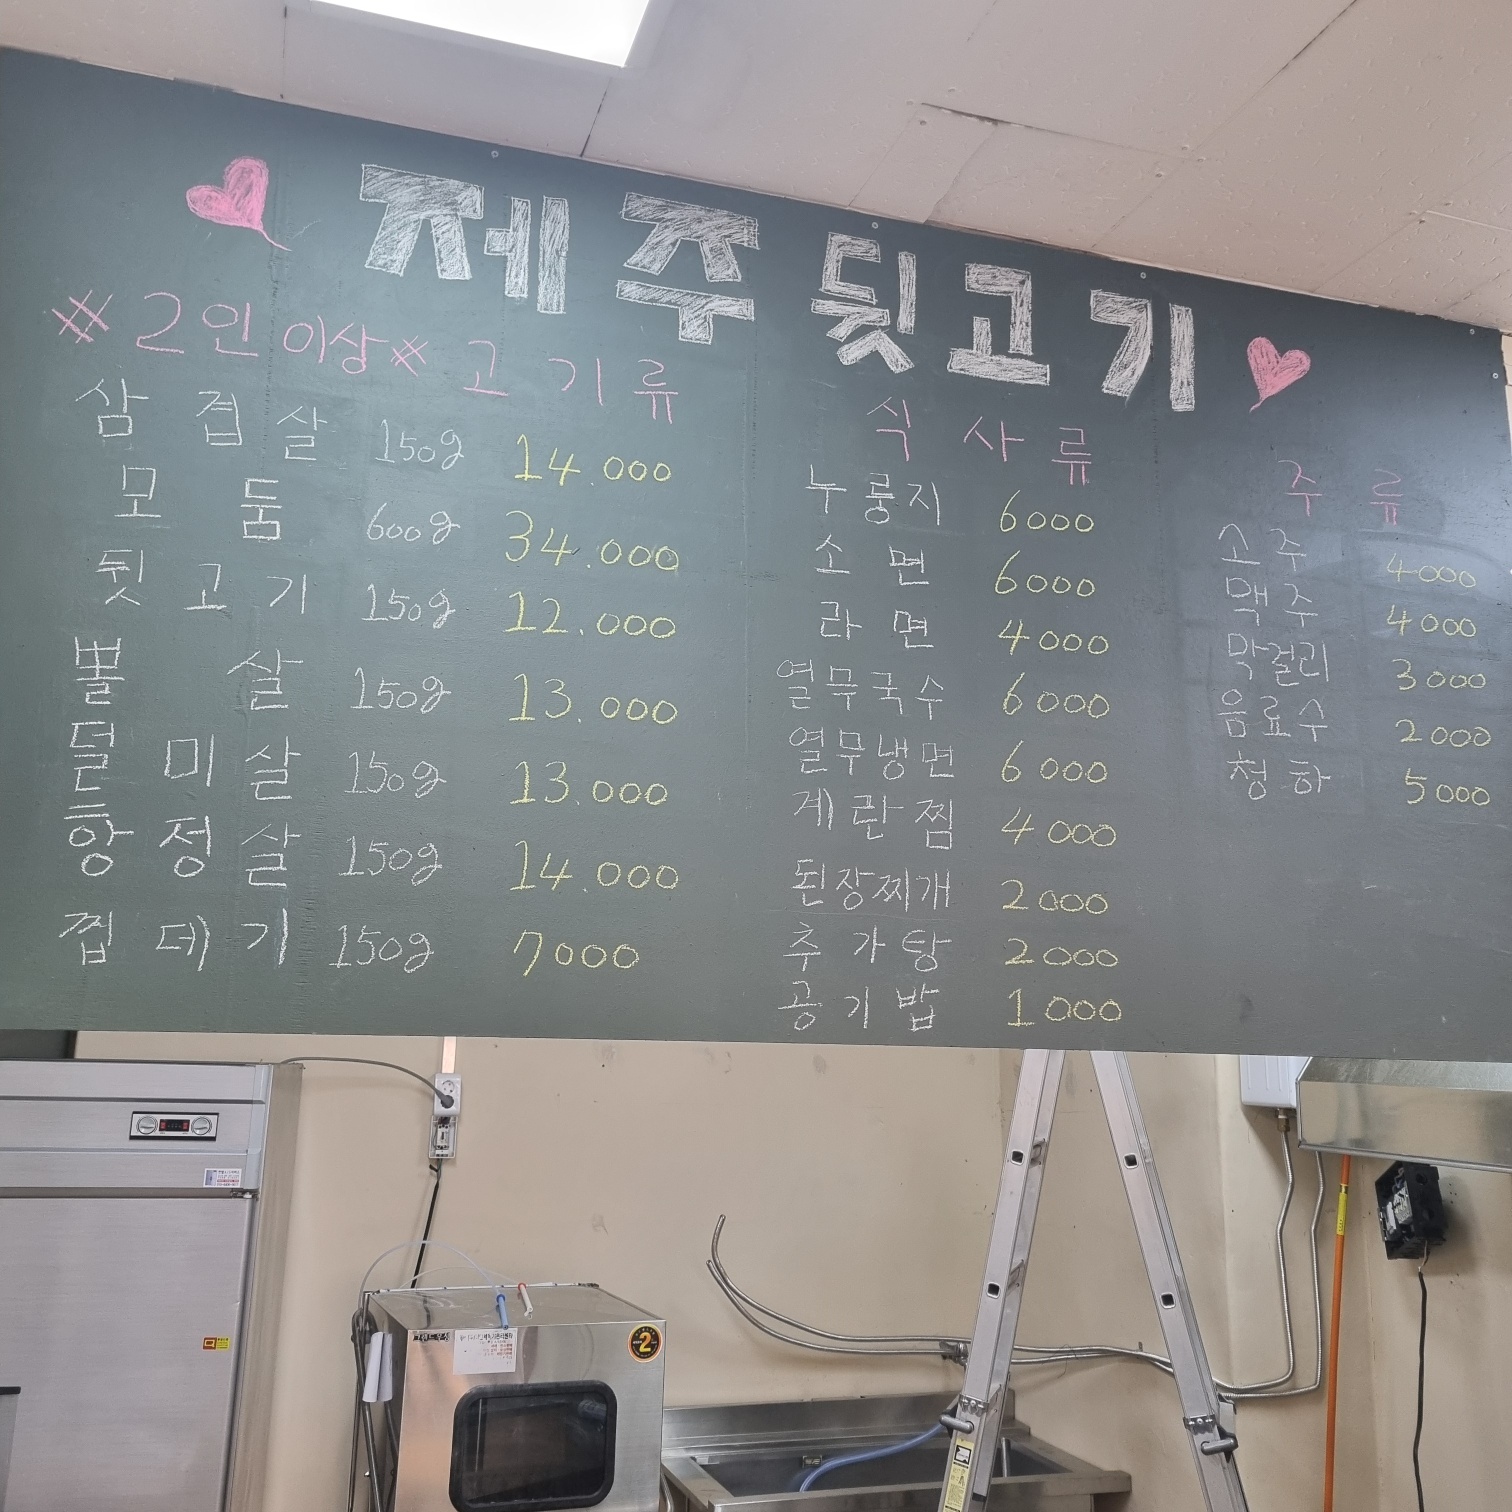 제주 뒷고기
※2인 이상※ 고기류
삼겹살 150g 14.000
모둠 600g 34.000
뒷고기 150g 12.000
뽈살 150g 13.000
덜미살 150g 13.000
항정살 150g 14.000
껍데기 150g 7000
식사류
누룽지 6000
소면 6000
라면 4000
열무국수 6000
열무냉면 6000
계란찜 4000
된장찌개 2000
추가탕 2000
공기밥 1000
주류
소주 4000
맥주 4000
막걸리 3000
음료수 2000
청하 5000
2